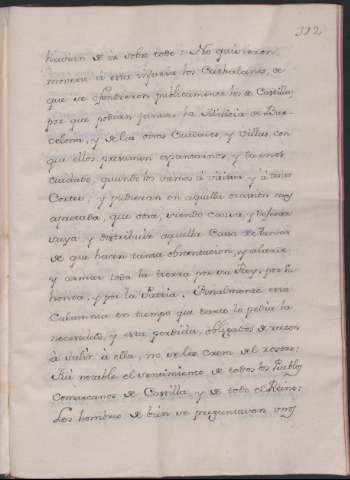 332
havian de ir sobre todo: No quisieron
moverse á esta los Cathalanes, de
que se ofendieron publicamente los de Castilla,
por que podian juntar la Milicia de Bar-
celona, y de las otras Ciudades, y Villas, con
que ellos y
cuidado, quando los vamos á á otras
Cortes; y pudieran en aquella ocasion muy
apretada, que otra, viendo causa
suya y distribuir aquella Casa de Armas
de que hacen tanta obstentacion, y alzarse
y armar toda la tierra por su Rey, por su
honra, y por la Patria. Finalmente esta
Calumnia en tiempo que tanto lo pedia la
necesidad, y esta perdida, obligados de razon
á valer á ella, no se les caerá del rostro:
Fue notable el sentimiento de todos los Pueblos
Comarcanos de Castilla, y de todo el Reino:
Los hombres de bien se preguntavan unos